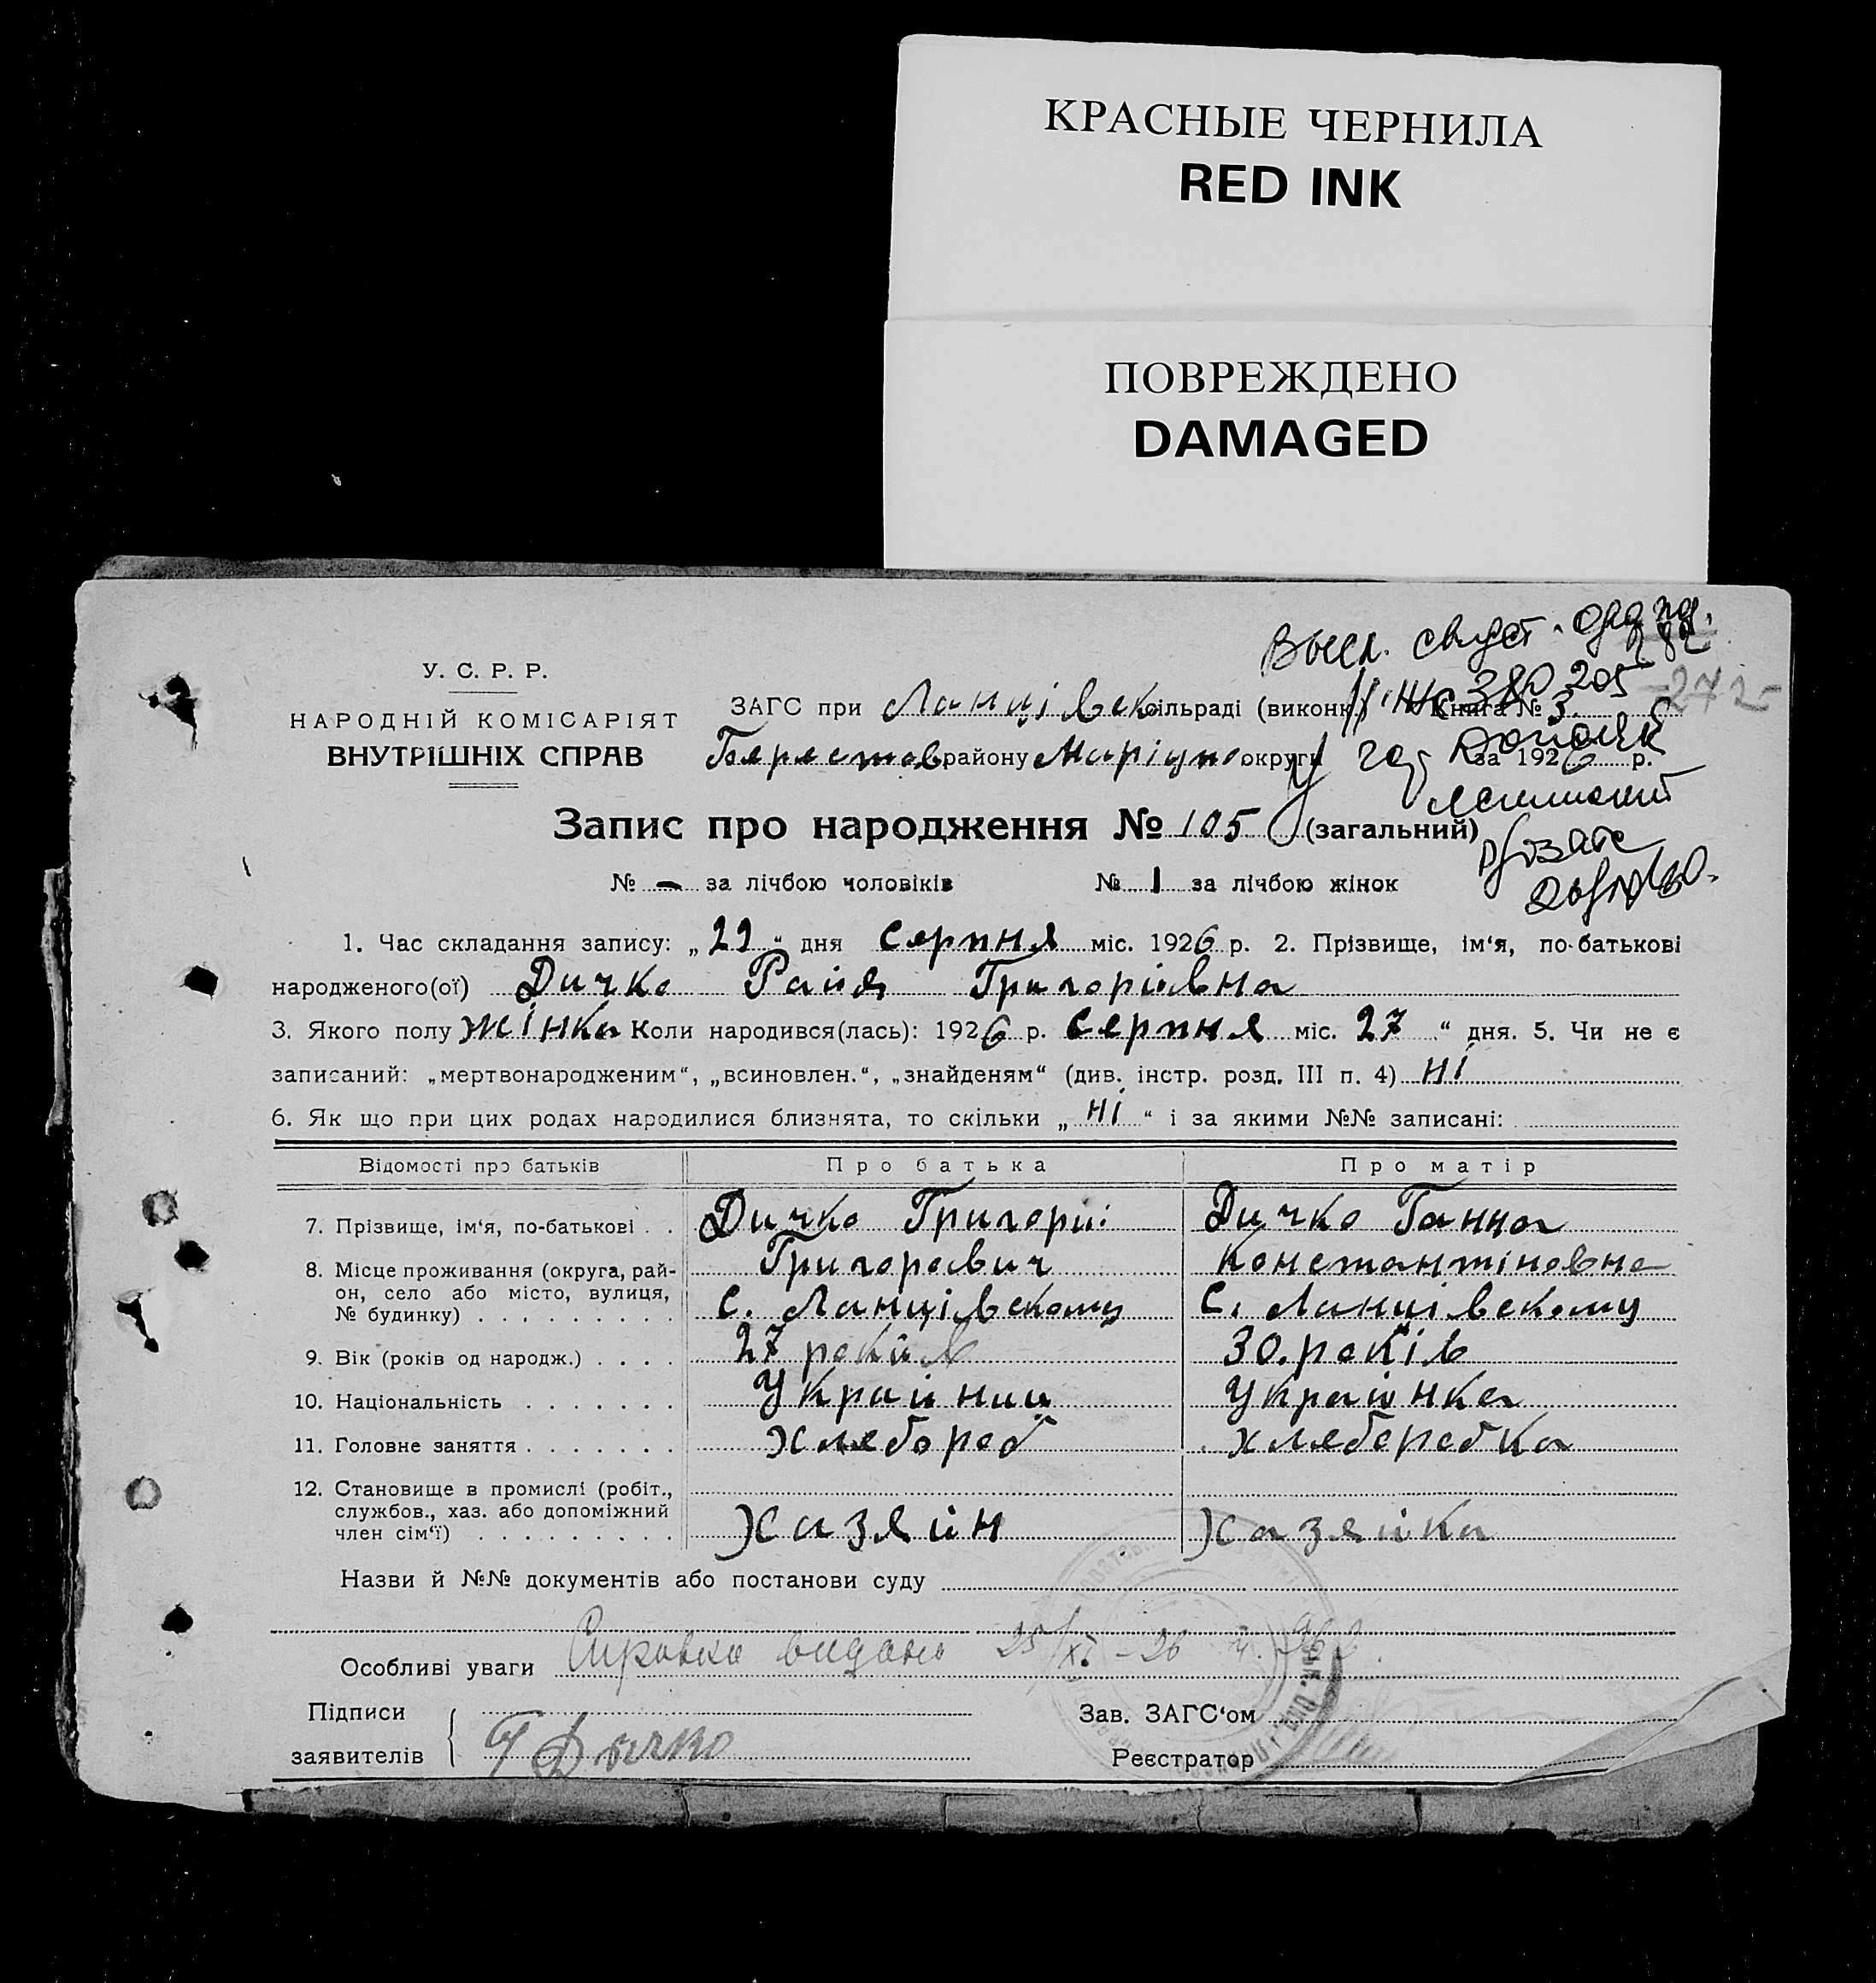 КРАСНЫЕ ЧЕРНИЛА
RED INK
ПОВРЕЖДЕНО
DAMAGED
У. С. Р. Р.
НАРОДНІЙ КОМІСАРІЯТ
ВНУТРІШНІХ СПРАВ
ЗАГС при Ланцівск сільраді (викон.) Книга № 3.
272
Берестов району Маріупо округи за 1926 р.
Запис про народження № 105 (загальний)
№ - за лічбою чоловіків № 1 за лічбою жінок
1. Час складання запису: „29“ дня Серпня міс. 1926 р. 2. Прізвище, ім‘я, по-батькові
народженого(ої) Дичко Райя Григорівна
3. Якого полу жінка Коли народився(лась): 1926 р. Серпня міс. 27“ дня. 5. Чи не є
записаний: „мертвонародженим“, „всиновлен.“, „знайденям“ (див. інстр. розд. III п. 4) ні
6. Як що при цих родах народилися близнята, то скільки „ні“ і за якими №№ записані:
Відомості про батьків Про батька Про матір
7. Прізвище, ім‘я, по-батькові . . Дичко Григорій Дичко Ганна
Григорович Константіновна
8. Місце проживання (округа, рай-
он, село або місто, вулиця, с. Ланцівскому с. Ланцівскому
№ будинку) . . . . . . . . .
9. Вік (років од народж.) . . . . 27 років 30. років
10. Національність . . . . . . . Украйниц Украйнка
11. Головне заняття . . . . . . . хлебороб хлеборобка
12. Становище в промислі (робіт.,
службов., хаз. або допоміжний
член сім‘ї) . . . . . . . . . Хазяйн Хазяйка
Назви й №№ документів або постанови суду
Особливі уваги Справка видана 25/XI - 26
Підписи
заявителів Г Дычко
Зав. ЗАГС‘ом
Реєстратор